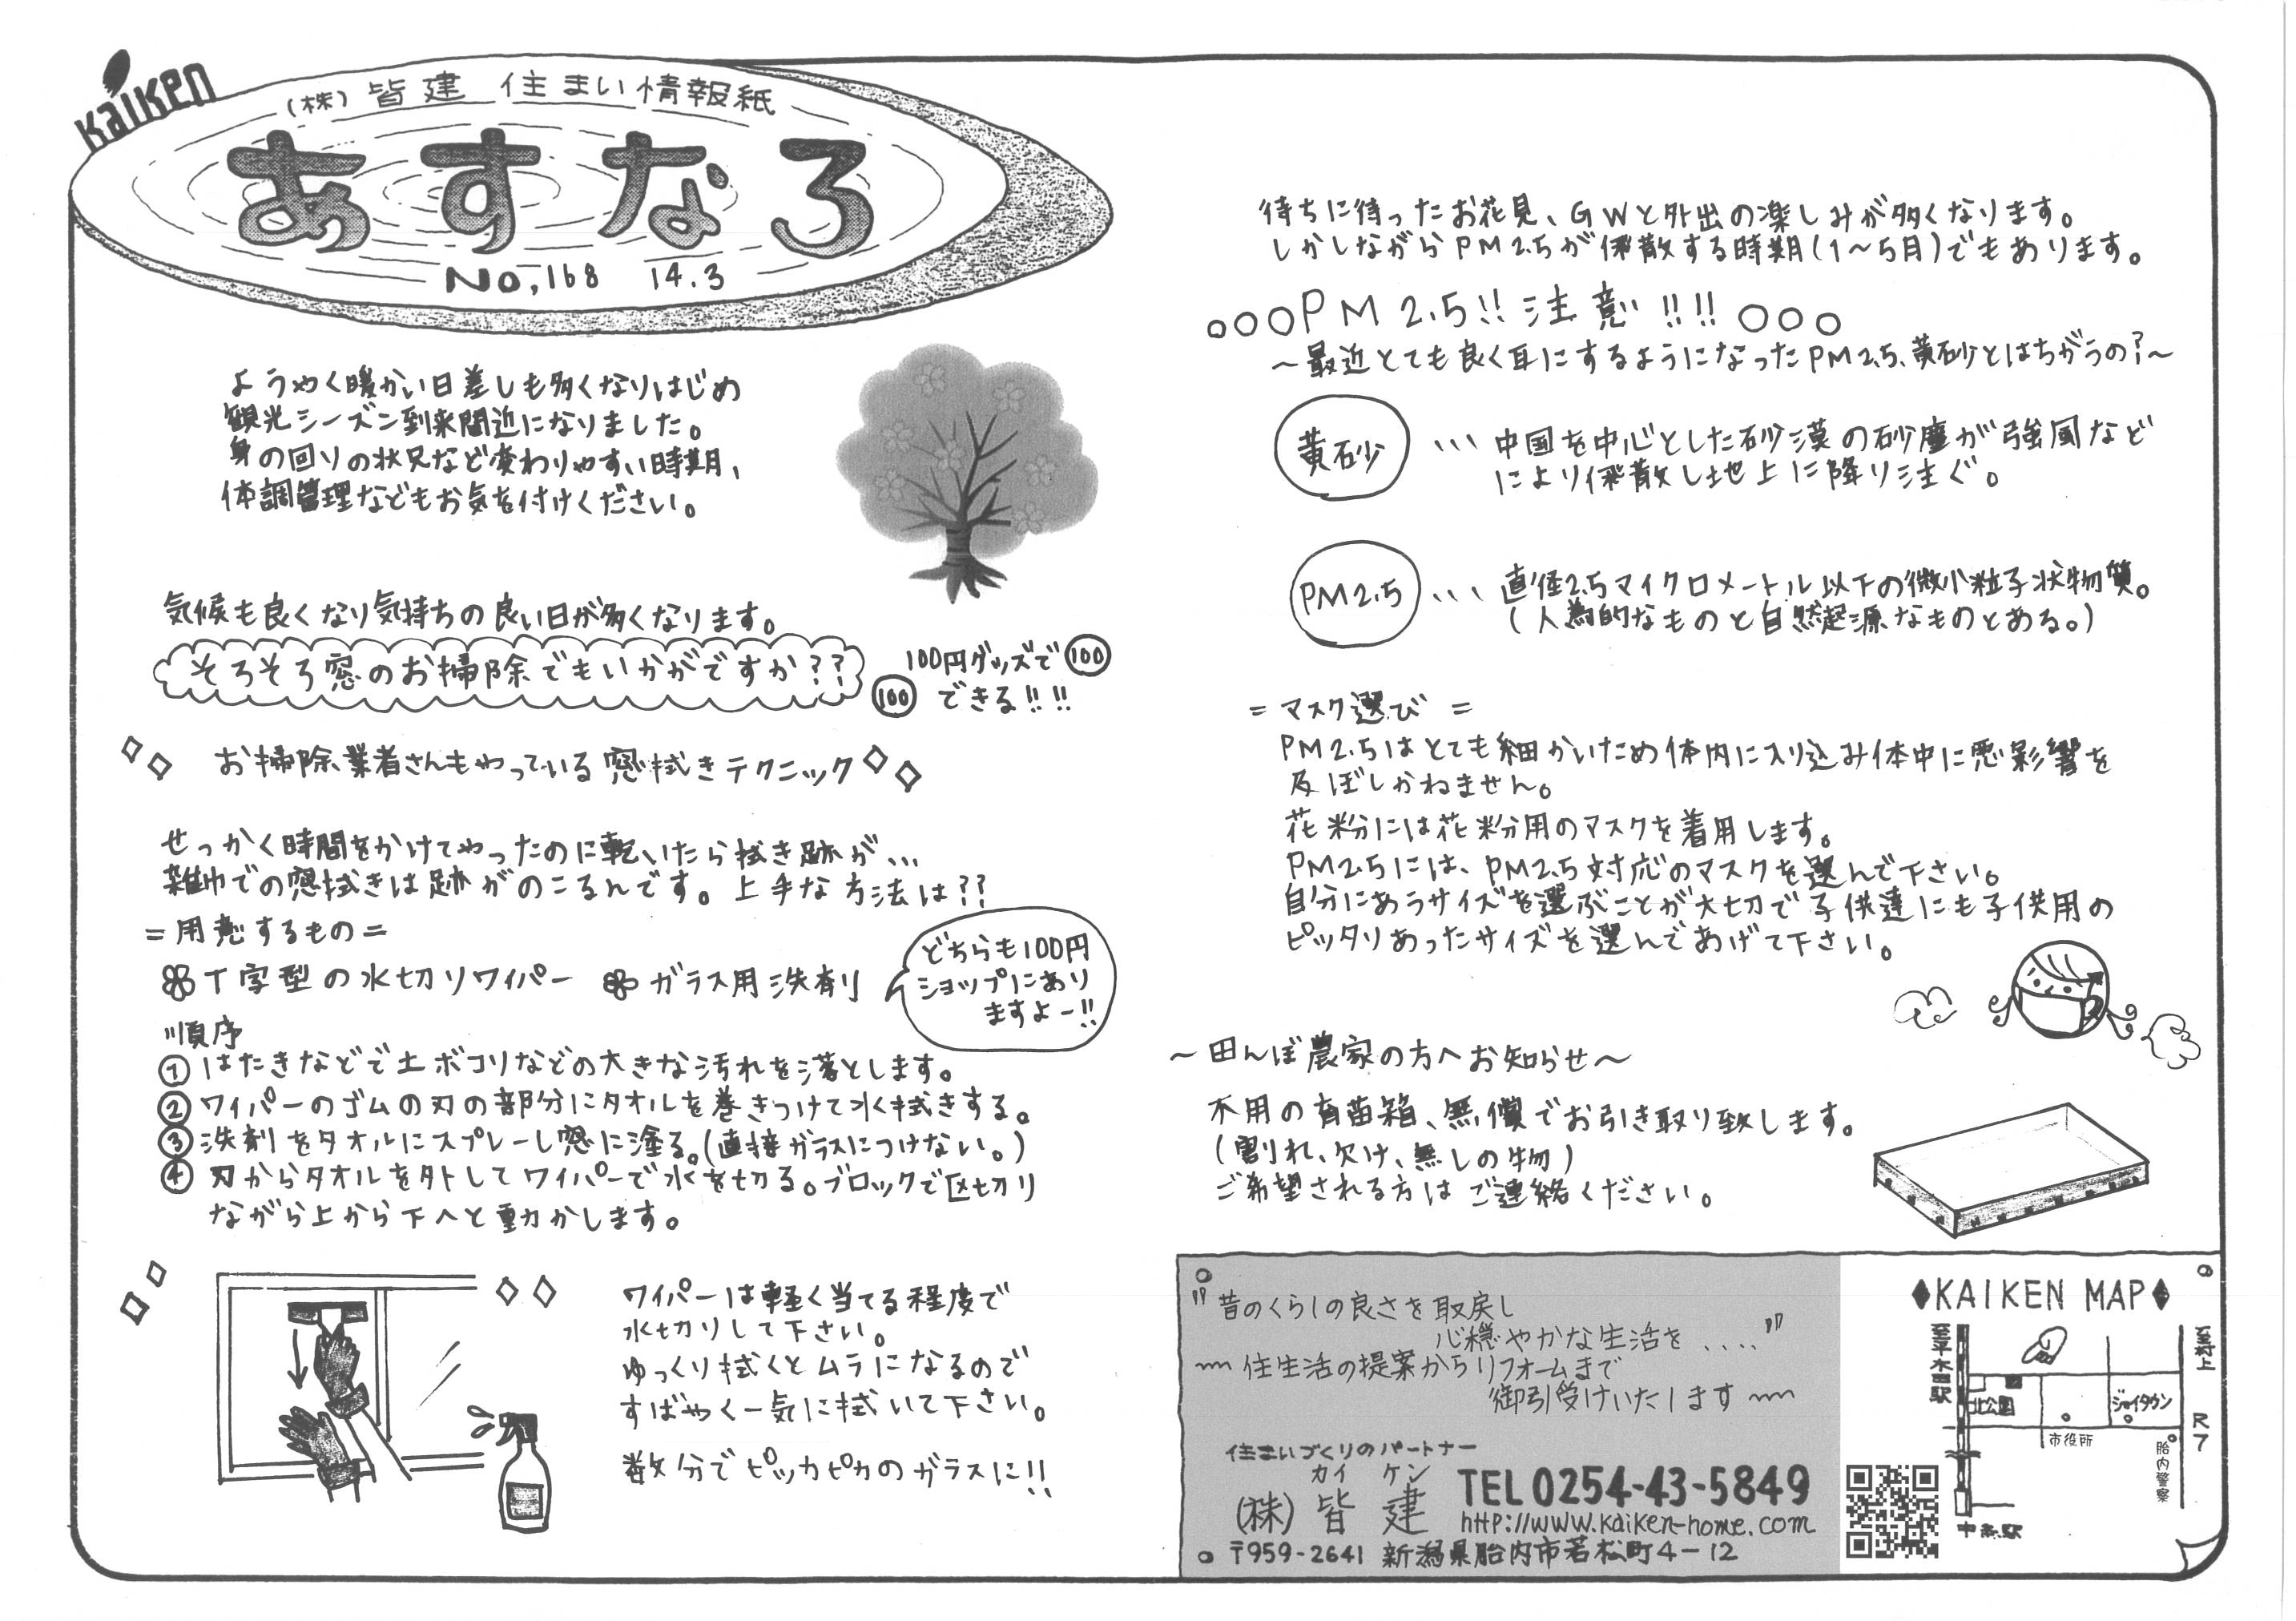 Kaiken
(株)皆建 住まい情報紙
あすなろ
No,168 14.3
ようやく暖かい日差しも多くなりはじめ
観光シーズン到来間近になりました。
身の回りの状況など変わりやすい時期、
体調管理などもお気を付けください。
気候も良くなり気持ちの良い日が多くなります。
そろそろ窓のお掃除でもいかがですか??
100円グッズで 100
100 できる!!!!
お掃除業者さんもやっている窓拭きテクニック
せっかく時間をかけてやったのに乾いたら拭き跡が...
雑巾での窓拭きは跡がのこるんです。上手な方法は??
=用意するもの=
T字型の水切りワイパー ガラス用洗剤
どちらも100円
ショップにあり
ますよー!!
順序
①はたきなどで土ボコリなどの大きな汚れを落とします。
②ワイパーのゴムの刃の部分にタオルを巻きつけて水拭きする。
③洗剤をタオルにスプレーし窓に塗る。(直接ガラスにつけない。)
④刃からタオルを外してワイパーで水を切る。ブロックで区切り
ながら上から下へと動かします。
ワイパーは軽く当てる程度で
水切りして下さい。
ゆっくり拭くとムラになるので
すばやく一気に拭いて下さい。
数分でピッカピカのガラスに!!
待ちに待ったお花見、GWと外出の楽しみが多くなります。
しかしながらPM2.5が飛散する時期(1~5月)でもあります。
○○○PM2.5!!注意!!!!○○○
~最近とても良く耳にするようになったPM2.5、黄砂とはちがうの?~
黄砂 ... 中国を中心とした砂漠の砂塵が強風など
により飛散し地上に降り注ぐ。
PM2.5 ... 直径2.5マイクロメートル以下の微小粒子状物質。
(人為的なものと自然起源なものとある。)
=マスク選び=
PM2.5はとても細かいため体内に入り込み体中に悪影響を
及ぼしかねません。
花粉には花粉用のマスクを着用します。
PM2.5には、PM2.5対応のマスクを選んで下さい。
自分にあうサイズを選ぶことが大切で子供達にも子供用の
ピッタリあったサイズを選んであげて下さい。
~田んぼ農家の方へお知らせ~
不用の育苗箱、無償でお引き取り致します。
(割れ、欠け、無しの物)
ご希望される方はご連絡ください。
"昔のくらしの良さを取戻し
心穏やかな生活を...."
~住生活の提案からリフォームまで
御引受けいたします~
住まいづくりのパートナー
カイ ケン
(株)皆建 TEL0254-43-5849
http://www.kaiken-home.com
〒959-2641 新潟県胎内市若松町4-12
◆KAIKEN MAP◆
至平木田駅
至村上
R7
北公園
ジョイタウン
市役所
胎内警察
中条駅